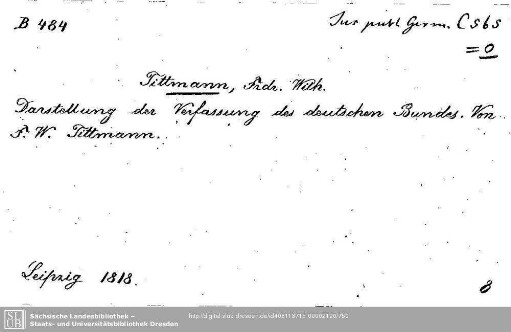 B 484
Jus publ. Germ. C 565
= 0
Tittmann, Frdr. Wilh.
Darstellung der Verfassung des deutschen Bundes. Von
F. W. Tittmann.
Leipzig 1818.
8
Sächsische Landesbibliothek –
Staats- und Universitätsbibliothek Dresden